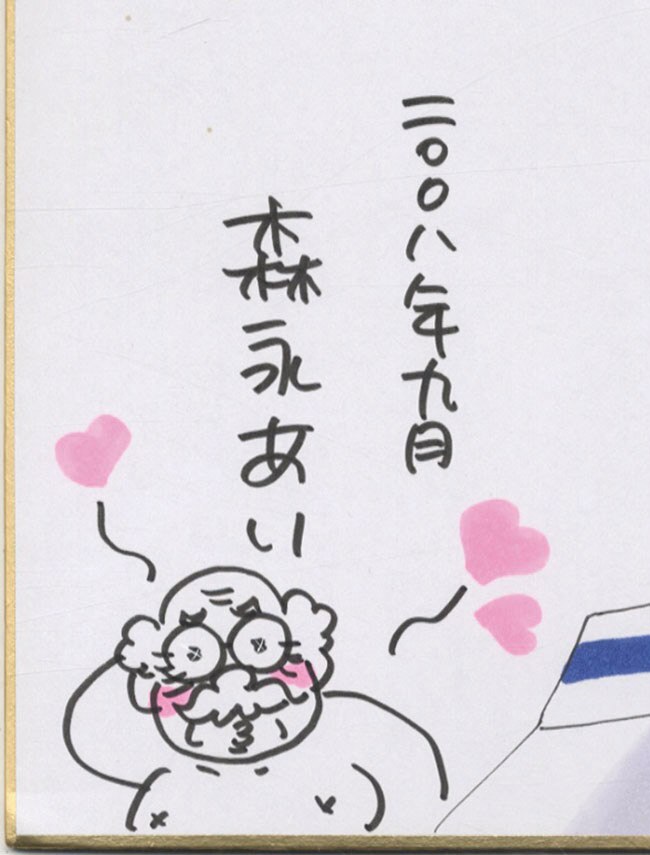 二〇〇八年九月
森永あい